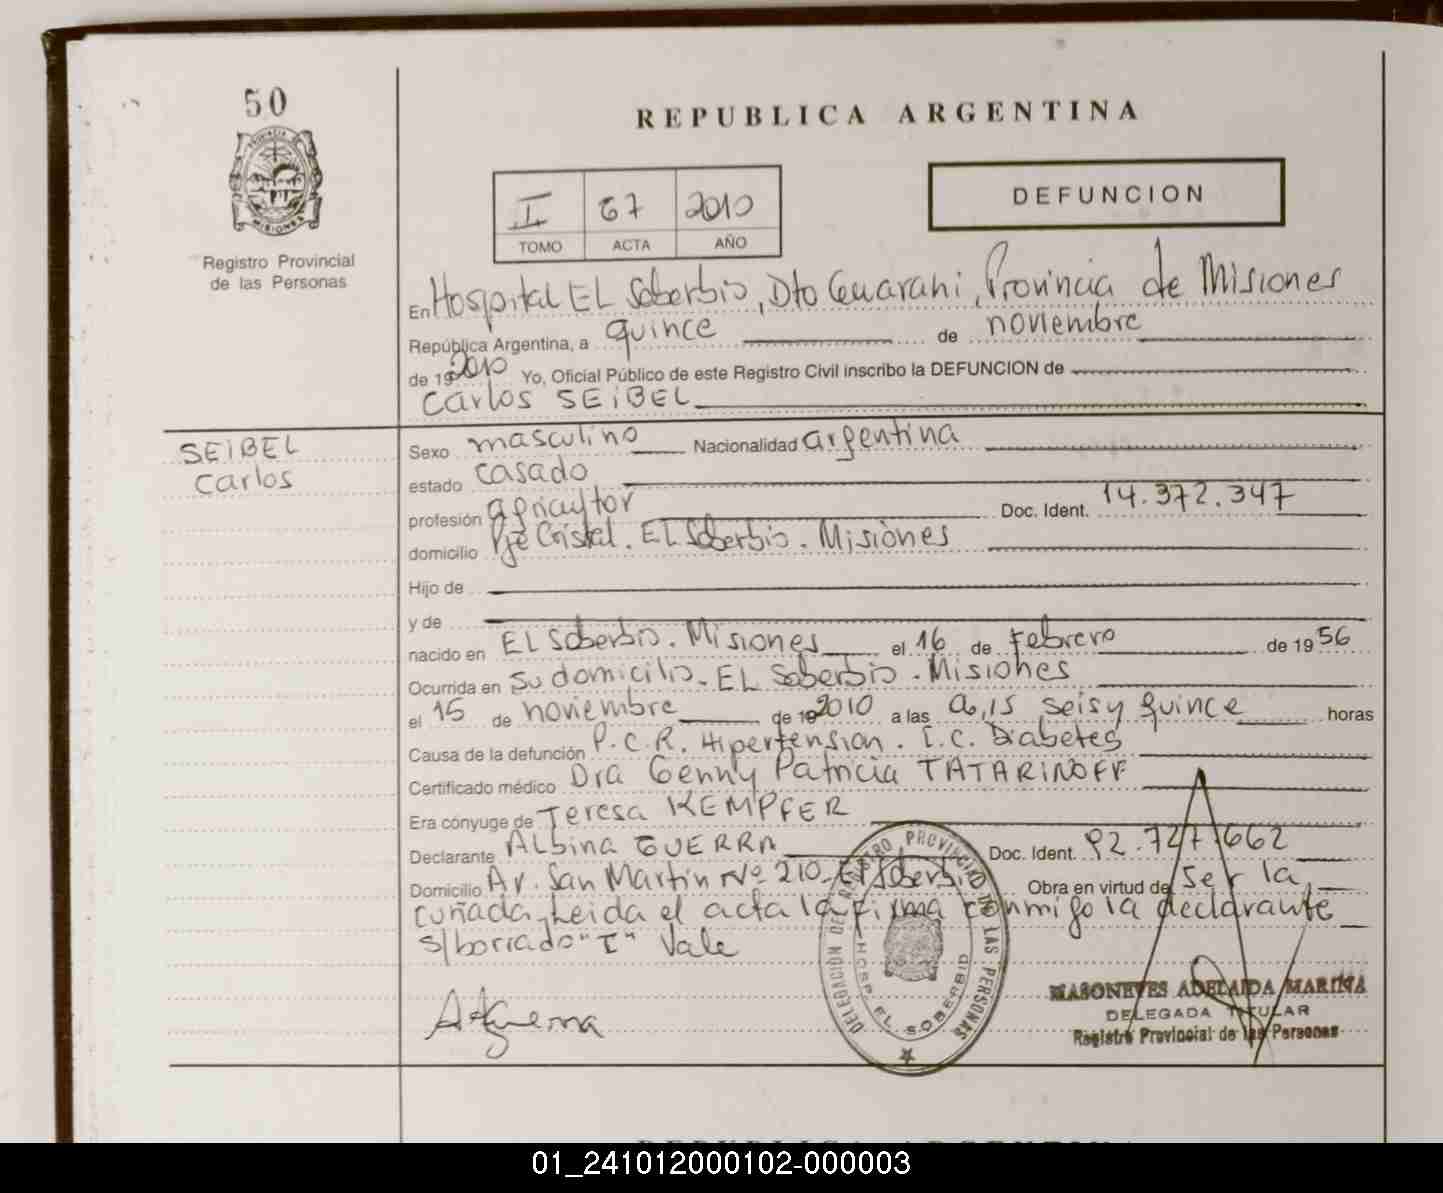 50
REPUBLICA ARGENTINA
PROVINCIA DE MISIONES
Registro Provincial
de las Personas
I 67 2010
TOMO ACTA AÑO
DEFUNCION
En Hospital EL Soberbio, Dto Guarani, Provincia de Misiones
República Argentina, a quince de noviembre
de 19 2010 Yo, Oficial Público de este Registro Civil inscribo la DEFUNCION de
Carlos SEIBEL
SEIBEL
Carlos
Sexo masculino Nacionalidad argentina
estado casado
profesión agricultor Doc. Ident. 14.372.347
domicilio Pje Cristal. EL Soberbio. Misiones
Hijo de
y de
nacido en EL Soberbio. Misiones el 16 de Febrero de 1956
Ocurrida en su domicilio. EL Soberbio. Misiones
el 15 de noviembre de 19 2010 a las 6,15 seis y quince horas
Causa de la defunción P.C.R. Hipertension. I.C. Diabetes
Certificado médico Dra Genny Patricia TATARINOFF
Era cónyuge de Teresa KEMPFER
Declarante Albina GUERRA Doc. Ident. 92.727.662
Domicilio Av. San Martin Nº 210. El Soberbio Obra en virtud de ser la
cuñada, Leida el acta la firma conmigo la declarante
s/borrado "I" Vale
DELEGACIÓN DEL REGISTRO PROVINCIAL DE LAS PERSONAS
HOSP. EL SOBERBIO
MASONEVES ADELAIDA MARINA
DELEGADA TITULAR
Registro Provincial de las Personas
REPUBLICA ARGENTINA
01_241012000102-000003